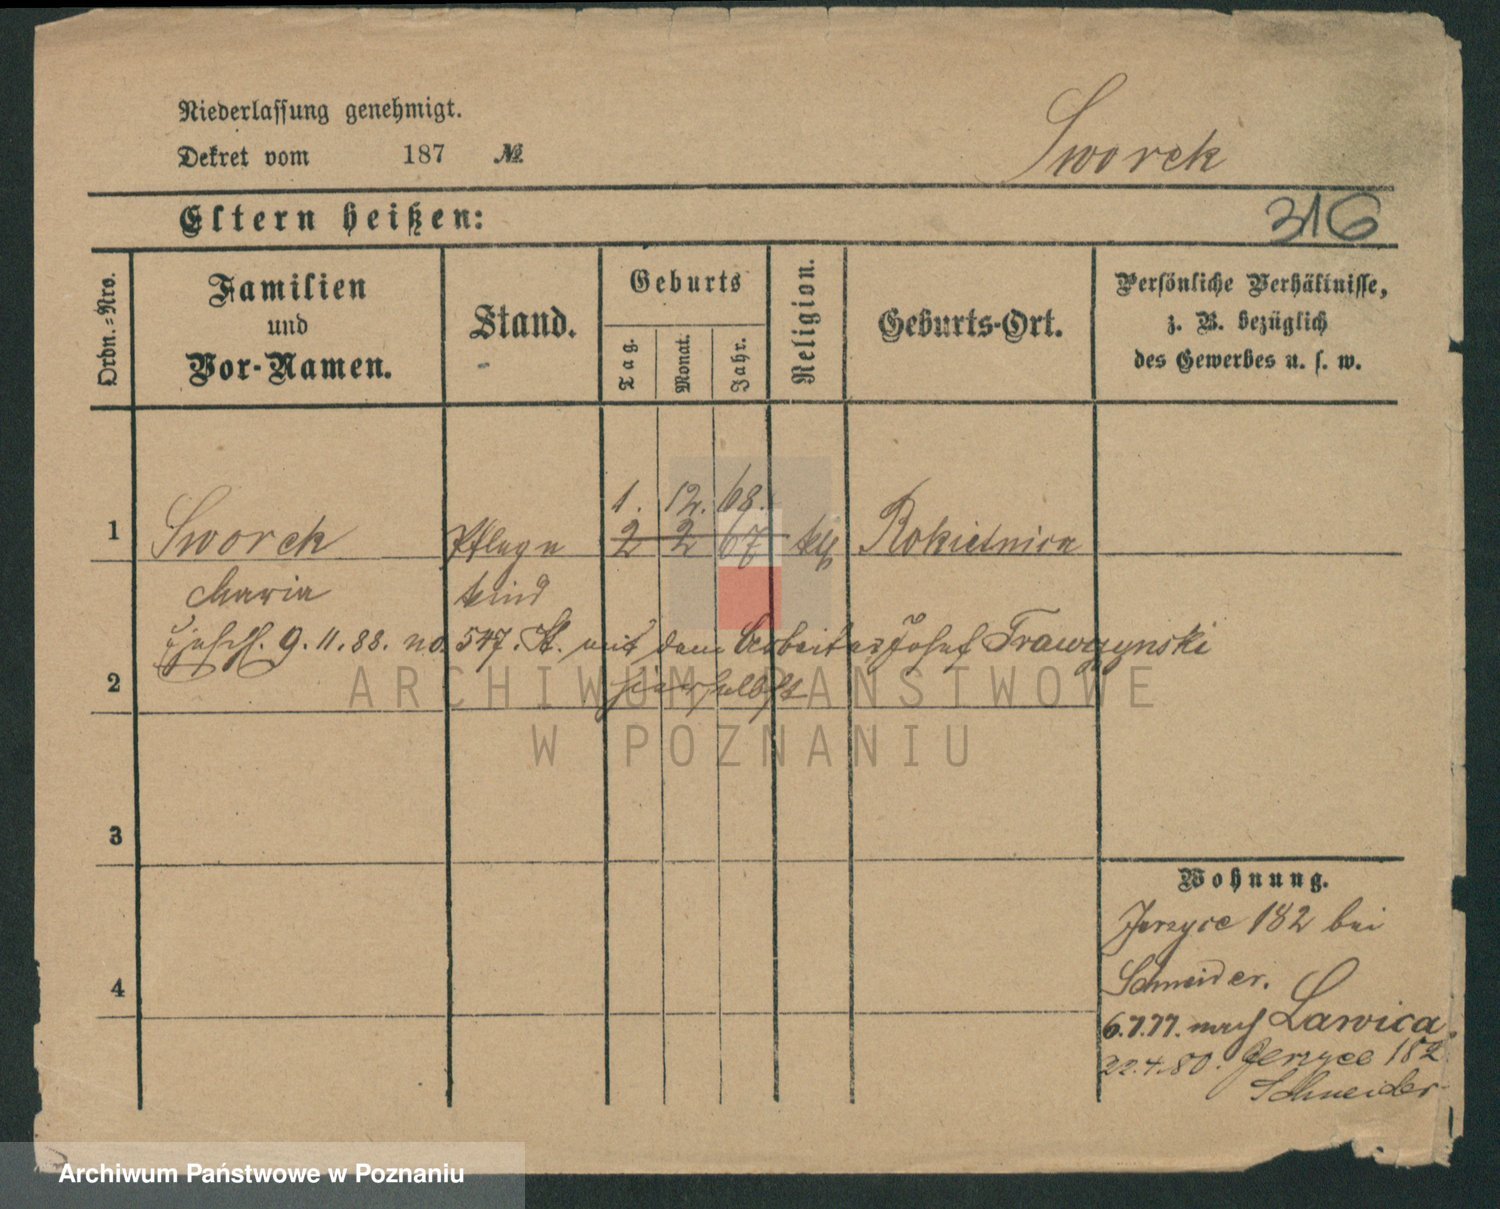 Niederlassung genehmigt.
Dekret vom 187 №
Sworek
Eltern heißen:
316
Ordn.-Nro.
Familien
und
Vor-Namen.
Stand.
Geburts
Tag.
Monat.
Jahr.
Religion.
Geburts-Ort.
Persönliche Verhältnisse,
z. B. bezüglich
des Gewerbes u. s. w.
1. 12. 68.
1 Sworek Pflege 2 2 67 kth Rokietnica
Maria kind
9.11.88. no. 547. St. mit dem Arbeiter Josef Trawczynski
2 hierselbst
3
4
Wohnung.
Jerzyce 182 bei
Schneider.
6.7.77. nach Lawica.
22.4.80. Jerzyce 182
Schneider
ARCHIWUM PAŃSTWOWE
W POZNANIU
Archiwum Państwowe w Poznaniu